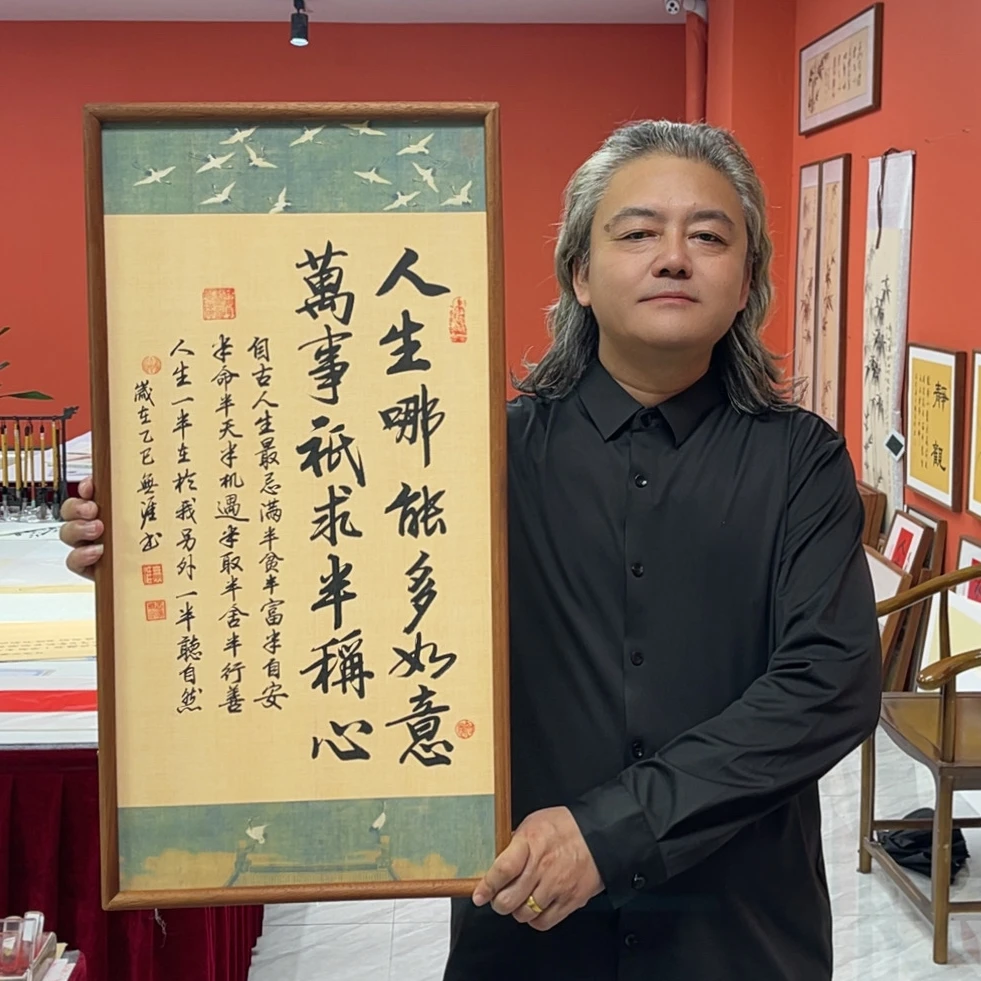 人生哪能多如意
萬事祇求半稱心
自古人生最忌满半贪半富半自安
半命半天半机遇半取半舍半行善
人生一半在於我另外一半聽自然
歲在乙巳無涯书
靜觀